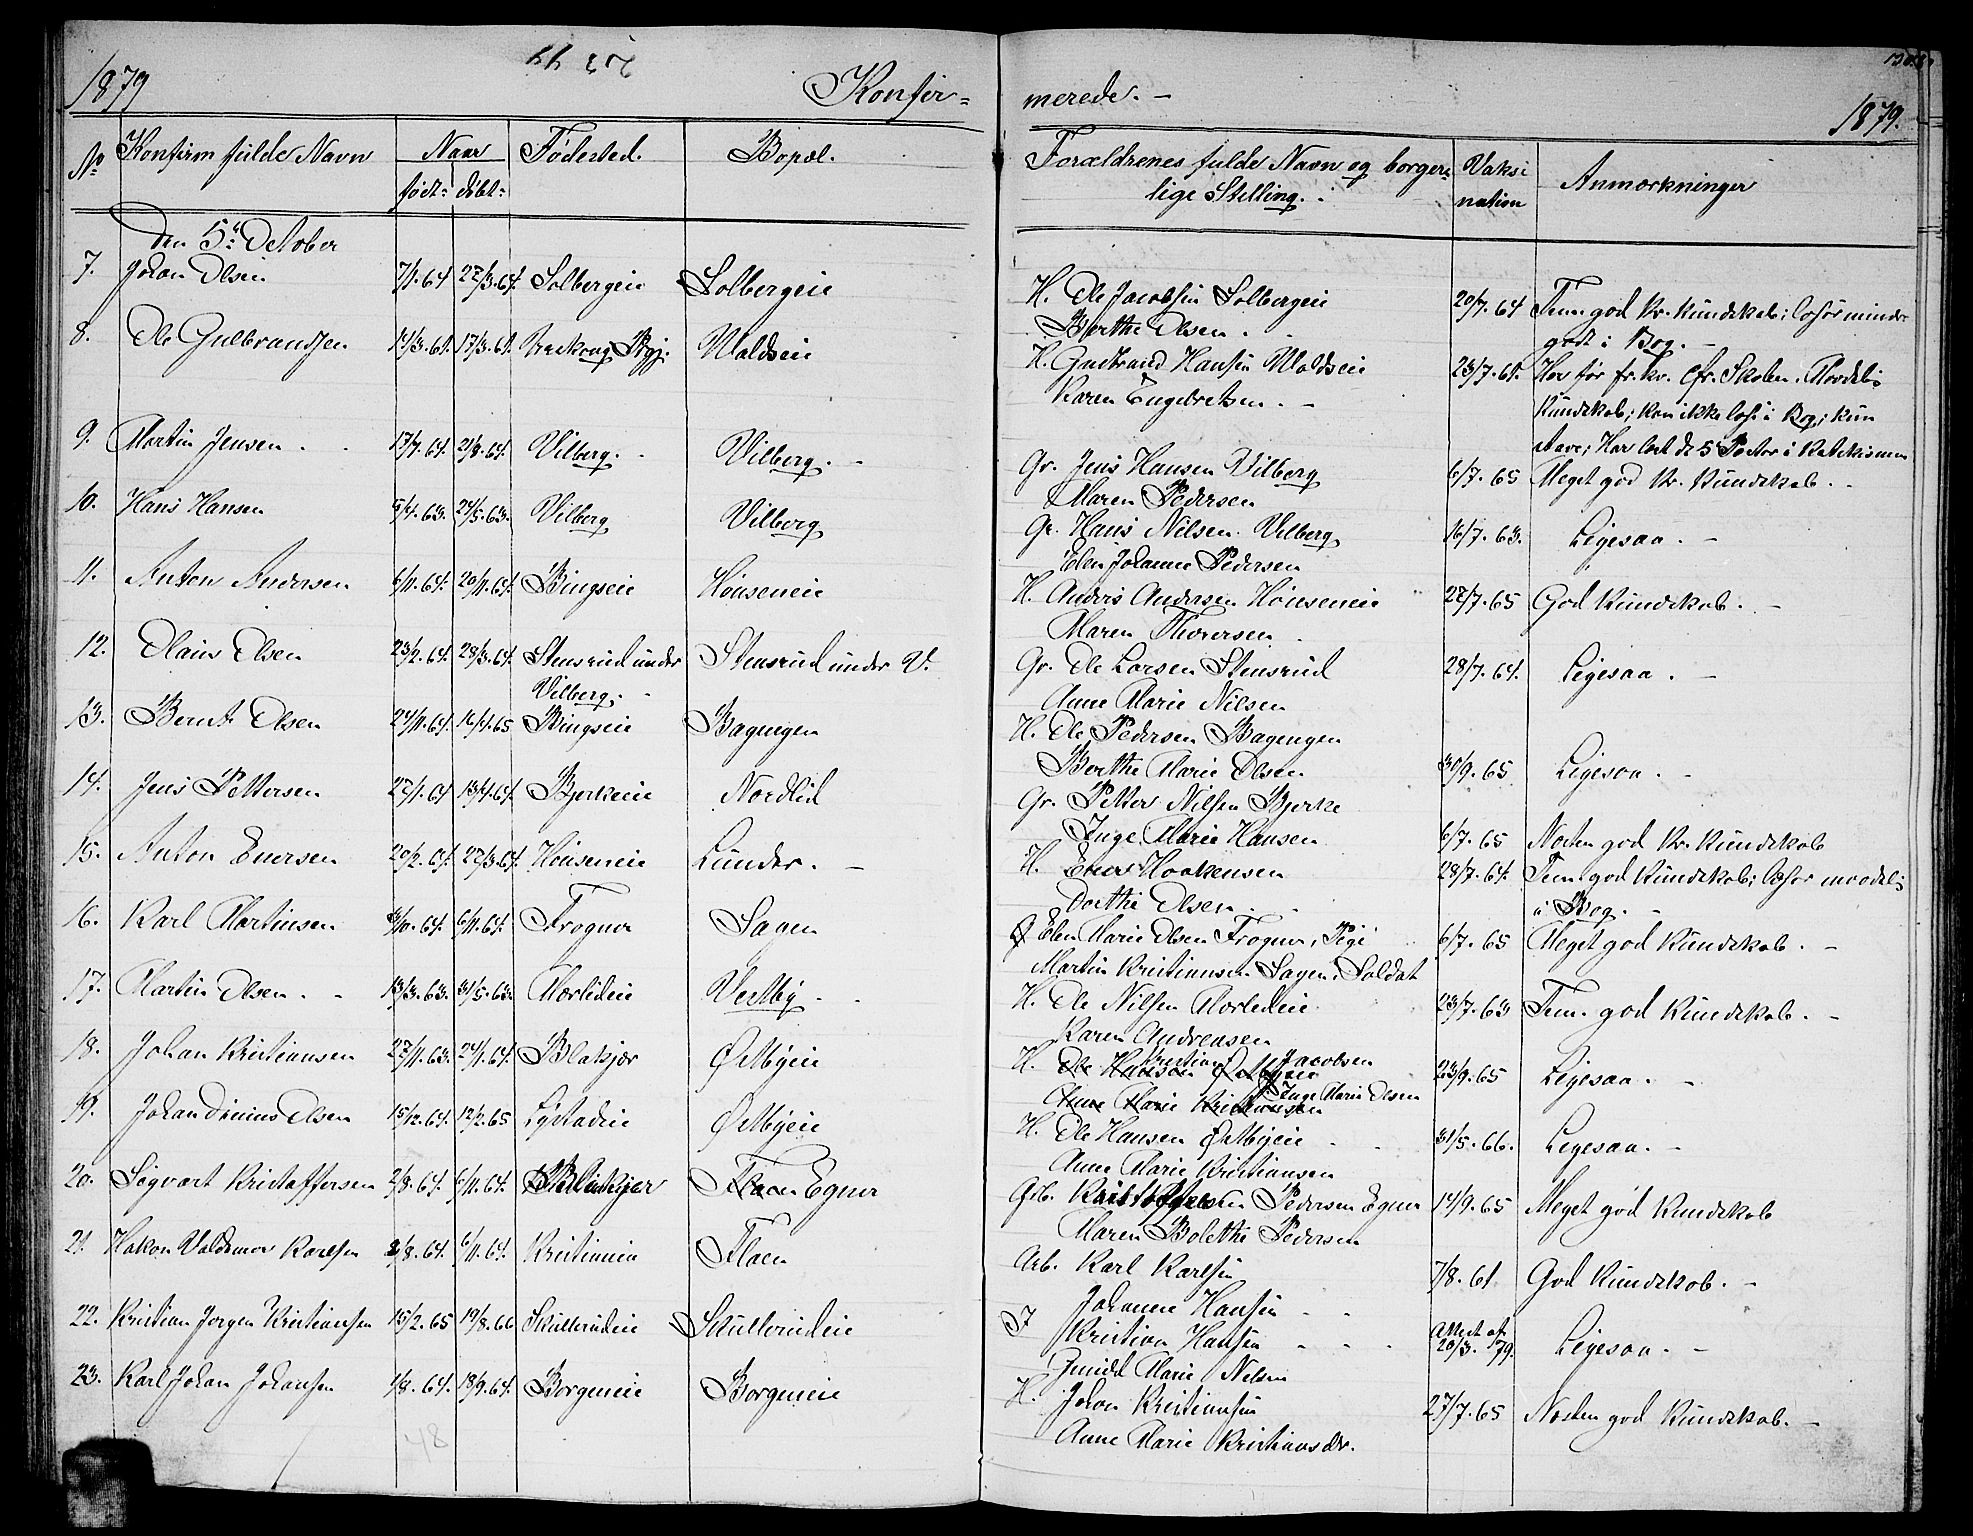 1879
Konfir-
merede. -
1879.
No Konfirm fulde Navn Naar Fødested. Bopæl.
født: døbt:
Forældrenes fulde Navn og borger-
lige Stilling. Vaksi Anmærkninger
nation
Den 5te October
7. Johan Olsen 7/1.64 27/3.64. Solbergeie Solbergeie
H. Ole Jacobsen Solbergeie 20/7.64 Tem. god Kr. Kundskab; læser mindre
Berthe Olsen. godt i Bog. -
8. Ole Gulbrandsen 14/3.61. 17/3.61. Moldseie
H. Gudbrand Hansen Moldseie 23/7.61. Har før fr. kv. Skolen. Maadeli
Karen Engebretsen. - Kundskab; kan ikke læse i Bog; kun
stave; Har lært de 5 Parter i Katekismen
9. Martin Jensen. 17/7.64. 21/8.64. Vilberg. Vilberg. -
Gr. Jens Hansen Vilberg 6/7.65 Meget god Kr. Kundskab. -
Maren Pedersen
10. Hans Hansen 5/4.63. 24/5.63. Vilberg Vilberg
Gr. Hans Nilsen Vilberg 16/7.63. Ligesaa. -
Elen Johanne Pedersen
11. Anton Andersen 6/11.64. 20/11.64. Bingseie Hønseneie
H. Anders Andersen Hønseneie 27/7.65 God Kundskab. -
Maren Thorersen
12. Olaus Olsen 23/2.64. 28/3.64. Stensrud under Stensrud under V.
Vilberg.
Gr. Ole Larsen Stensrud 28/7.64. Ligesaa. -
Anne Marie Nilsen
13. Bernt Olsen 24/11.64. 16/4.65 Bingseie Bagengen
H. Ole Pedersen Bagengen
Berthe Marie Olsen 30/9.65 Ligesaa. -
14. Jens Pettersen 27/1.64 13/4.64. Bjerkeie Nordlid
Gr. Petter Nilsen Bjerke
Inge Marie Hansen 6/7.65 Næsten god Kr. Kundskab
15. Anton Enersen 20/2.64. 27/3.64. Hønseneie Lunder. -
H. Ener Haakensen 28/7.64. Tem. god Kundskab; læser maadeli
Dorthe Olsen. i Bog. -
16. Karl Martinsen 3/10.64. 6/11.64. Frogner Sagen
Elen Marie Olsen Frogner, Pige 6/7.65 Meget god Kundskab. -
Martin Kristiansen Sagen, Soldat
17. Martin Olsen. 13/3.63. 31/5.63. Mærlideie Vestby.
H. Ole Nilsen Mærlideie 23/7.63 Tem. god Kundskab. -
Karen Andreasen
18. Johan Kristiansen 27/11.63. 24/1.64. Blakjær Østbyeie
H. Kristian Jacobsen 23/9.65 Ligesaa. -
Inge Marie Olsen
19. Johan Dinius Olsen 15/12.64. 12/2.65 Lystadeie Østbyeie
H. Ole Hansen Østbyeie 31/5.66. Ligesaa. -
Anne Marie Kristiansen
20. Sigvart Kristoffersen 2/8.64. 6/11.64. Egner
Pedersen Egner 14/9.65 Meget god Kundskab
Maren Bolette Pedersen
21. Hakon Valdemar Karlsen 2/8.64. 6/11.64. Kristiania Flaen
Arb. Karl Karlsen 7/8.61 God Kundskab. -
Johanne Hansen
22. Kristian Jørgen Kristiansen 15/2.65 19/8.66 Skullerudeie Skullerudeie
I Kristian Hansen Attest af 20/3.79. Ligesaa. -
Marie Nilsen
23. Karl Johan Johansen 1/8.64. 18/9.64. Borgeneie Borgeneie
H. Johan Kristiansen 27/7.65 Næsten god Kundskab. -
Anne Marie Kristiansdr.
48